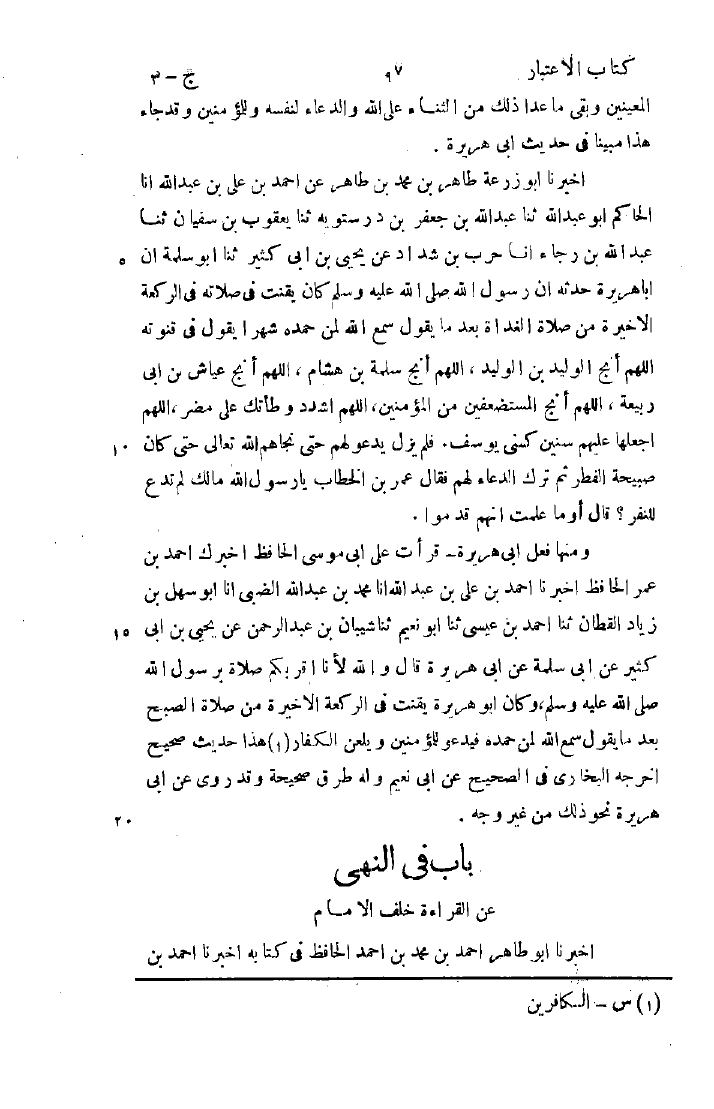 كتاب الاعتبار ٩٧ ج - ٣
المعينين وبقى ما عدا ذلك من الثناء على الله والدعاء لنفسه وللمؤمنين وقد جاء
هذا مبينا فى حديث ابى هريرة .
اخبرنا ابو زرعة طاهر بن محمد بن طاهر عن احمد بن على بن عبد الله انا
الحاكم ابو عبد الله ثنا عبد الله بن جعفر بن درستويه ثنا يعقوب بن سفيان ثنا
عبد الله بن رجاء انا حرب بن شداد عن يحيى بن ابى كثير ثنا ابو سلمة ان ٥
اباهريرة حدثه ان رسول الله صلى الله عليه وسلم كان يقنت فى صلاته فى الركعة
الاخيرة من صلاة الغداة بعد ما يقول سمع الله لمن حمده شهرا يقول فى قنوته
اللهم أنج الوليد بن الوليد ، اللهم أنج سلمة بن هشام ، اللهم أنج عياش بن ابى
ربيعة ، اللهم أنج المستضعفين من المؤمنين، اللهم اشدد وطأتك على مضر ،اللهم
اجعلها عليهم سنين كسنى يوسف. فلم يزل يدعو لهم حتى نجاهم الله تعالى حتى كان ١٠
صبيحة الفطر ثم ترك الدعاء لهم فقال عمر بن الخطاب يا رسول الله مالك لم تدع
للنفر ؟ قال أوما علمت انهم قدموا .
ومنها فعل ابى هريرة - قرأت على ابى موسى الحافظ اخبرك احمد بن
عمر الحافظ اخبرنا احمد بن على بن عبد الله انا محمد بن عبد الله الضبى انا ابو سهل بن
زياد القطان ثنا احمد بن عيسى ثنا ابو نعيم ثنا شيبان بن عبد الرحمن عن يحيى بن ابى ١٥
كثير عن ابى سلمة عن ابى هريرة قال والله لأنا اقربكم صلاة برسول الله
صلى الله عليه وسلم،وكان ابو هريرة يقنت فى الركعة الاخيرة من صلاة الصبح
بعد ما يقول سمع الله لمن حمده فيدعو للمؤمنين ويلعن الكفار(١)هذا حديث صحيح
اخرجه البخارى فى الصحيح عن ابى نعيم وله طرق صحيحة وقد روى عن ابى
هريرة نحو ذلك من غير وجه . ٢٠
باب فى النهى
عن القراءة خلف الامام
اخبرنا ابو طاهر احمد بن محمد بن احمد الحافظ فى كتابه اخبرنا احمد بن
(١) س - الكافرين